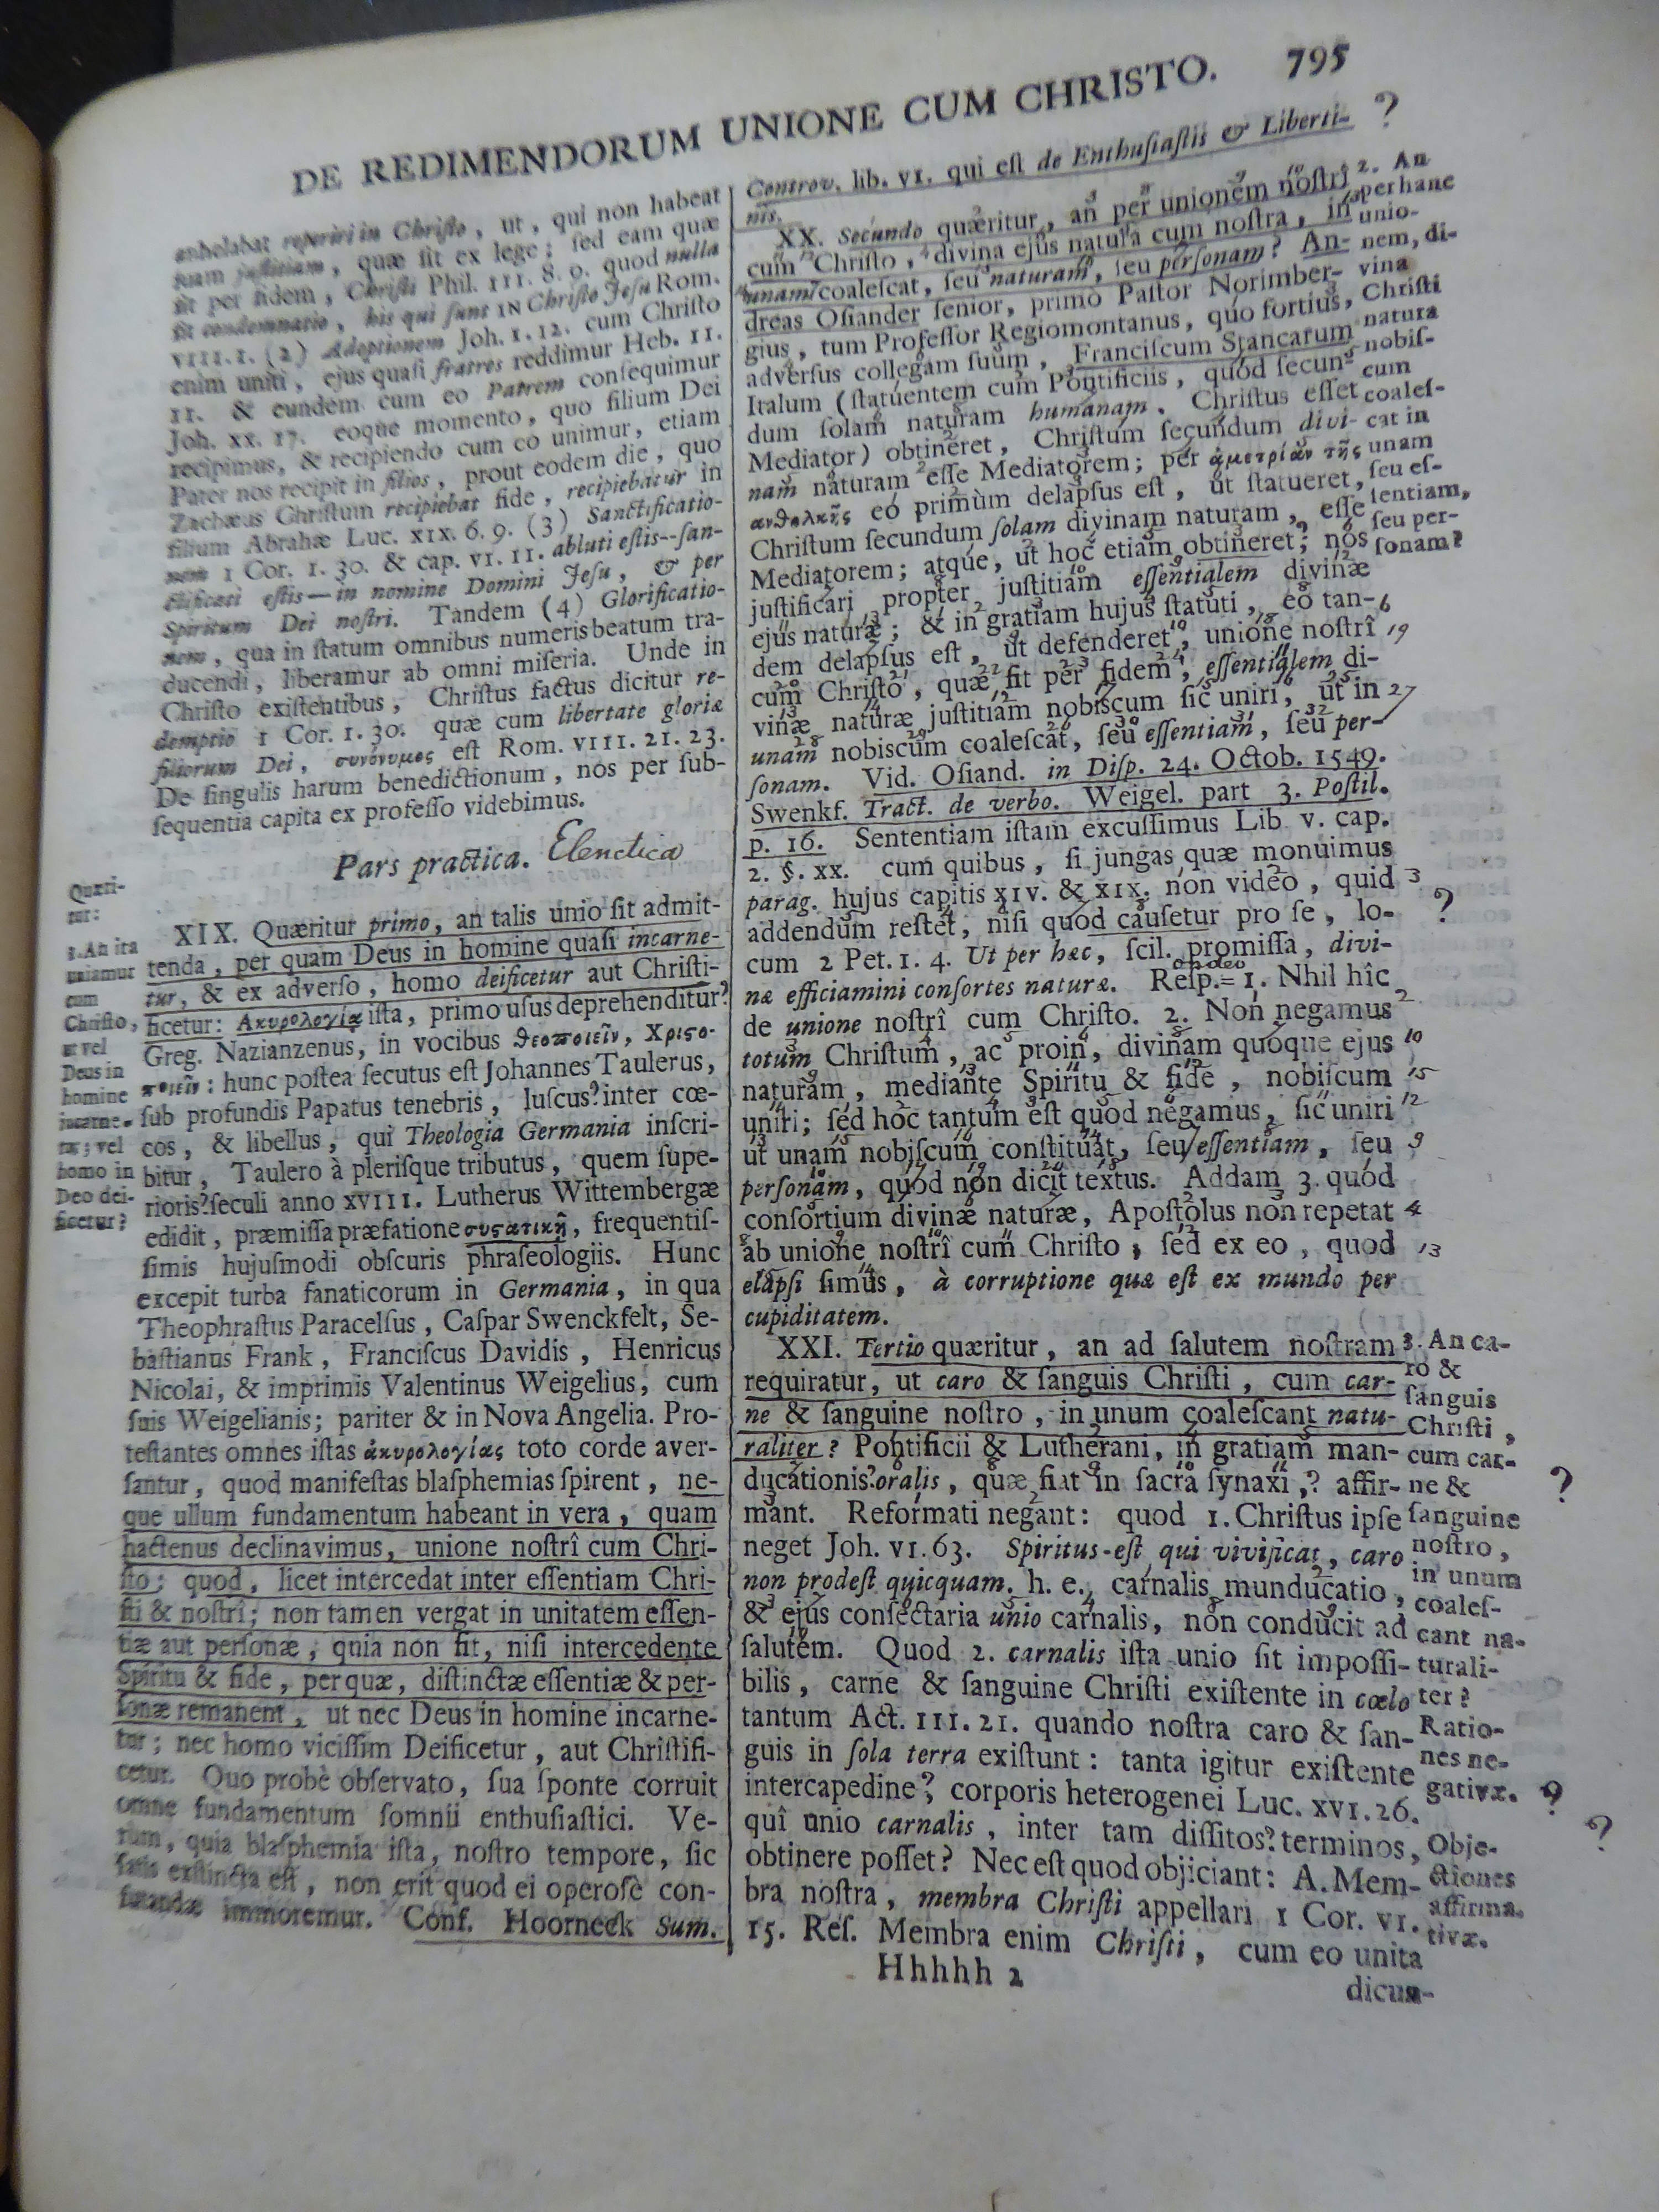 DE REDIMENDORUM UNIONE CUM CHRISTO. 795
anhelabat reperiri in Christo, ut, qui non habeat
suam justitiam, quæ sit ex lege; sed eam quæ
sit per fidem, Christi Phil. III. 8. 9. quod nulla
sit condemnatio, his qui sunt IN Christo Jesu Rom.
VIII. 1. (2) Adoptionem Joh. 1. 12. cum Christo
enim uniti, ejus quasi fratres reddimur Heb. 11.
11. & eundem cum eo Patrem consequimur
Joh. XX. 17. eoque momento, quo filium Dei
recipimus, & recipiendo cum eo unimur, etiam
Pater nos recipit in filios, prout eodem die, quo
Zachæus Christum recipiebat fide, recipiebatur in
filium Abrahæ Luc. XIX. 6. 9. (3) Sanctificatio-
nem 1 Cor. 1. 30. & cap. VI. 11. abluti estis--san-
ctificati estis—in nomine Domini Jesu, & per
Spiritum Dei nostri. Tandem (4) Glorificatio-
nem, qua in statum omnibus numeris beatum tra-
ducendi, liberamur ab omni miseria. Unde in
Christo existentibus, Christus factus dicitur re-
demptio 1 Cor. 1. 30. quæ cum libertate gloriæ
filiorum Dei, συνόνυμος est Rom. VIII. 21. 23.
De singulis harum benedictionum, nos per sub-
sequentia capita ex professo videbimus.
Pars practica. Elenctica
Quæri-
tur:
1. An ita
uniamur
cum
Christo,
ut vel
Deus in
homine
incarne-
tur; vel
homo in
Deo dei-
ficetur?
XIX. Quæritur primo, an talis unio sit admit-
tenda, per quam Deus in homine quasi incarne-
tur, & ex adverso, homo deificetur aut Christi-
ficetur: Ακυρολογία ista, primo usus deprehenditur?
Greg. Nazianzenus, in vocibus θεοποιεῖν, Χριστο-
ποιεῖν: hunc postea secutus est Johannes Taulerus,
sub profundis Papatus tenebris, luscus? inter cœ-
cos, & libellus, qui Theologia Germania inscri-
bitur, Taulero à plerisque tributus, quem supe-
rioris? seculi anno XVIII. Lutherus Wittembergæ
edidit, præmissa præfatione συστατικῇ, frequentis-
simis hujusmodi obscuris phraseologiis. Hunc
excepit turba fanaticorum in Germania, in qua
Theophrastus Paracelsus, Caspar Swenckfelt, Se-
bastianus Frank, Franciscus Davidis, Henricus
Nicolai, & imprimis Valentinus Weigelius, cum
suis Weigelianis; pariter & in Nova Angelia. Pro-
testantes omnes istas ἀκυρολογίας toto corde aver-
santur, quod manifestas blasphemias spirent, ne-
que ullum fundamentum habeant in vera, quam
hactenus declinavimus, unione nostrî cum Chri-
sto; quod, licet intercedat inter essentiam Chri-
sti & nostrî; non tamen vergat in unitatem essen-
tiæ aut personæ, quia non fit, nisi intercedente
Spiritu & fide, per quæ, distinctæ essentiæ & per-
sonæ remanent, ut nec Deus in homine incarne-
tur; nec homo vicissim Deificetur, aut Christifi-
cetur. Quo probè observato, sua sponte corruit
omne fundamentum somnii enthusiastici. Ve-
rum, quia blasphemia ista, nostro tempore, sic
satis exstincta est, non erit quod ei operosè con-
futandæ immoremur. Conf. Hoorneek Sum.
Controv. lib. VI. qui est de Enthusiastis & Liberti- ?
nis.
XX. Secundo quæritur, an per unionem nostrî
cum Christo, divina ejus natura cum nostra, in
unam coalescat, seu naturam, seu personam? An-
dreas Osiander senior, primo Pastor Norimber-
gius, tum Professor Regiomontanus, quo fortius,
adversus collegam suum, Franciscum Stancarum
Italum (statuentem cum Pontificiis, quod secun-
dum solam naturam humanam, Christus esset
Mediator) obtineret, Christum secundum divi-
nam naturam esse Mediatorem; per ἀμετρίαν τῆς
ανθολκῆς eo primùm delapsus est, ut statueret,
Christum secundum solam divinam naturam, esse
Mediatorem; atque, ut hoc etiam obtineret; nos
justificari propter justitiam essentialem divinæ
ejus naturæ; & in gratiam hujus statuti, eo tan- 6
dem delapsus est, ut defenderet, unione nostrî 19
cum Christo, quæ fit per fidem, essentialem di-
vinæ naturæ justitiam nobiscum sic uniri, ut in 27
unam nobiscum coalescat, seu essentiam, seu per-
sonam. Vid. Osiand. in Disp. 24. Octob. 1549.
Swenkf. Tract. de verbo. Weigel. part 3. Postil.
p. 16. Sententiam istam excussimus Lib. V. cap.
2. §. XX. cum quibus, si jungas quæ monuimus
parag. hujus capitis XIV. & XIX. non video, quid 3
addendum restet, nisi quod causetur pro se, lo- ?
cum 2 Pet. 1. 4. Ut per hæc, scil. promissa, divi-
næ efficiamini consortes naturæ. Resp. 1. Nhil hîc
de unione nostrî cum Christo. 2. Non negamus 2
totum Christum, ac proin, divinam quoque ejus 10
naturam, mediante Spiritu & fide, nobiscum 15
uniri; sed hoc tantum est quod negamus, sic uniri 12
ut unam nobiscum constituat, seu essentiam, seu 9
personam, quod non dicit textus. Addam 3. quod
consortium divinæ naturæ, Apostolus non repetat 4
ab unione nostrî cum Christo, sed ex eo, quod 13
elapsi simus, à corruptione quæ est ex mundo per
cupiditatem.
XXI. Tertio quæritur, an ad salutem nostram
requiratur, ut caro & sanguis Christi, cum car-
ne & sanguine nostro, in unum coalescant natu-
raliter? Pontificii & Lutherani, in gratiam man-
ducationis? oralis, quæ fiat in sacra synaxi,? affir- ?
mant. Reformati negant: quod 1. Christus ipse
neget Joh. VI. 63. Spiritus-est qui vivificat, caro
non prodest quicquam. h. e. carnalis munducatio,
& ejus consectaria unio carnalis, non conducit ad
salutem. Quod 2. carnalis ista unio sit impossi-
bilis, carne & sanguine Christi existente in cœlo
tantum Act. III. 21. quando nostra caro & san-
guis in sola terra existunt: tanta igitur existente
intercapedine? corporis heterogenei Luc. XVI. 26. ?
quî unio carnalis, inter tam dissitos? terminos, ?
obtinere posset? Nec est quod objiciant: A. Mem-
bra nostra, membra Christi appellari 1 Cor. VI.
15. Res. Membra enim Christi, cum eo unita
2. An
per hanc
unio-
nem, di-
vina
Christi
natura
nobis-
cum
coales-
cat in
unam
seu es-
sentiam,
seu per-
sonam?
3. An ca-
ro &
sanguis
Christi,
cum car-
ne &
sanguine
nostro,
in unum
coales-
cant na-
turali-
ter?
Ratio-
nes ne-
gativæ.
Obje-
ctiones
affirma-
tivæ.
Hhhhh 2
dicun-